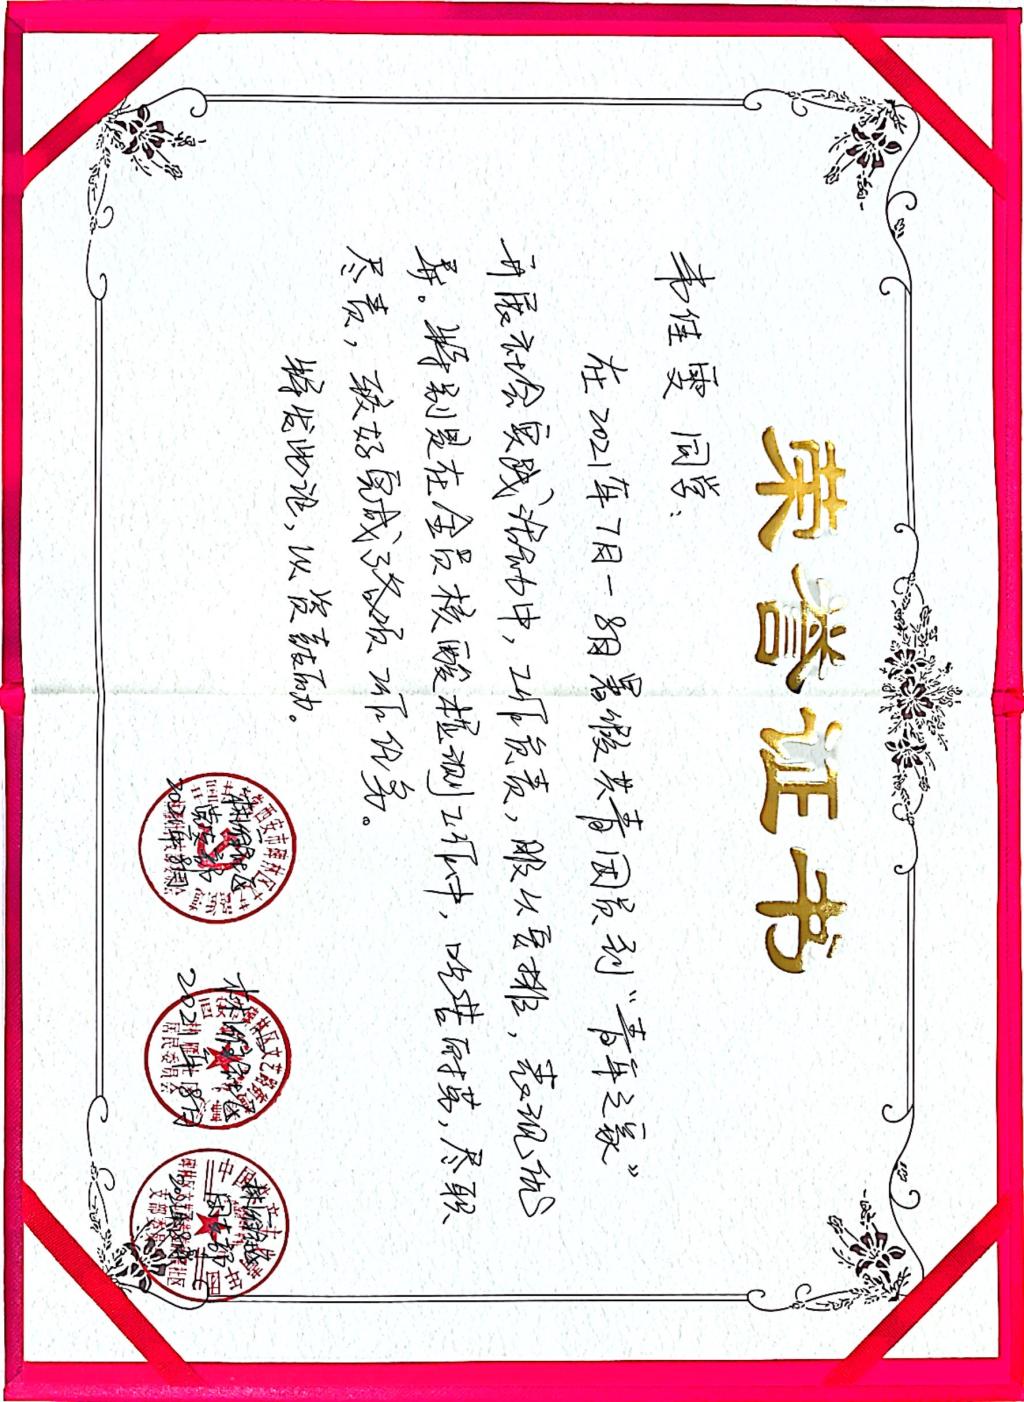 荣誉证书
韦佳雯同学：
在2021年7月—8月暑假共青团员到“青年之家”
开展社会实践活动中，工作负责，服从安排，表现优
异。特别是在全员核酸检测工作中，吃苦耐劳，尽职
尽责，较好完成了各项工作任务。
特发此证，以资鼓励。
2021年8月
2021年8月
居民委员会